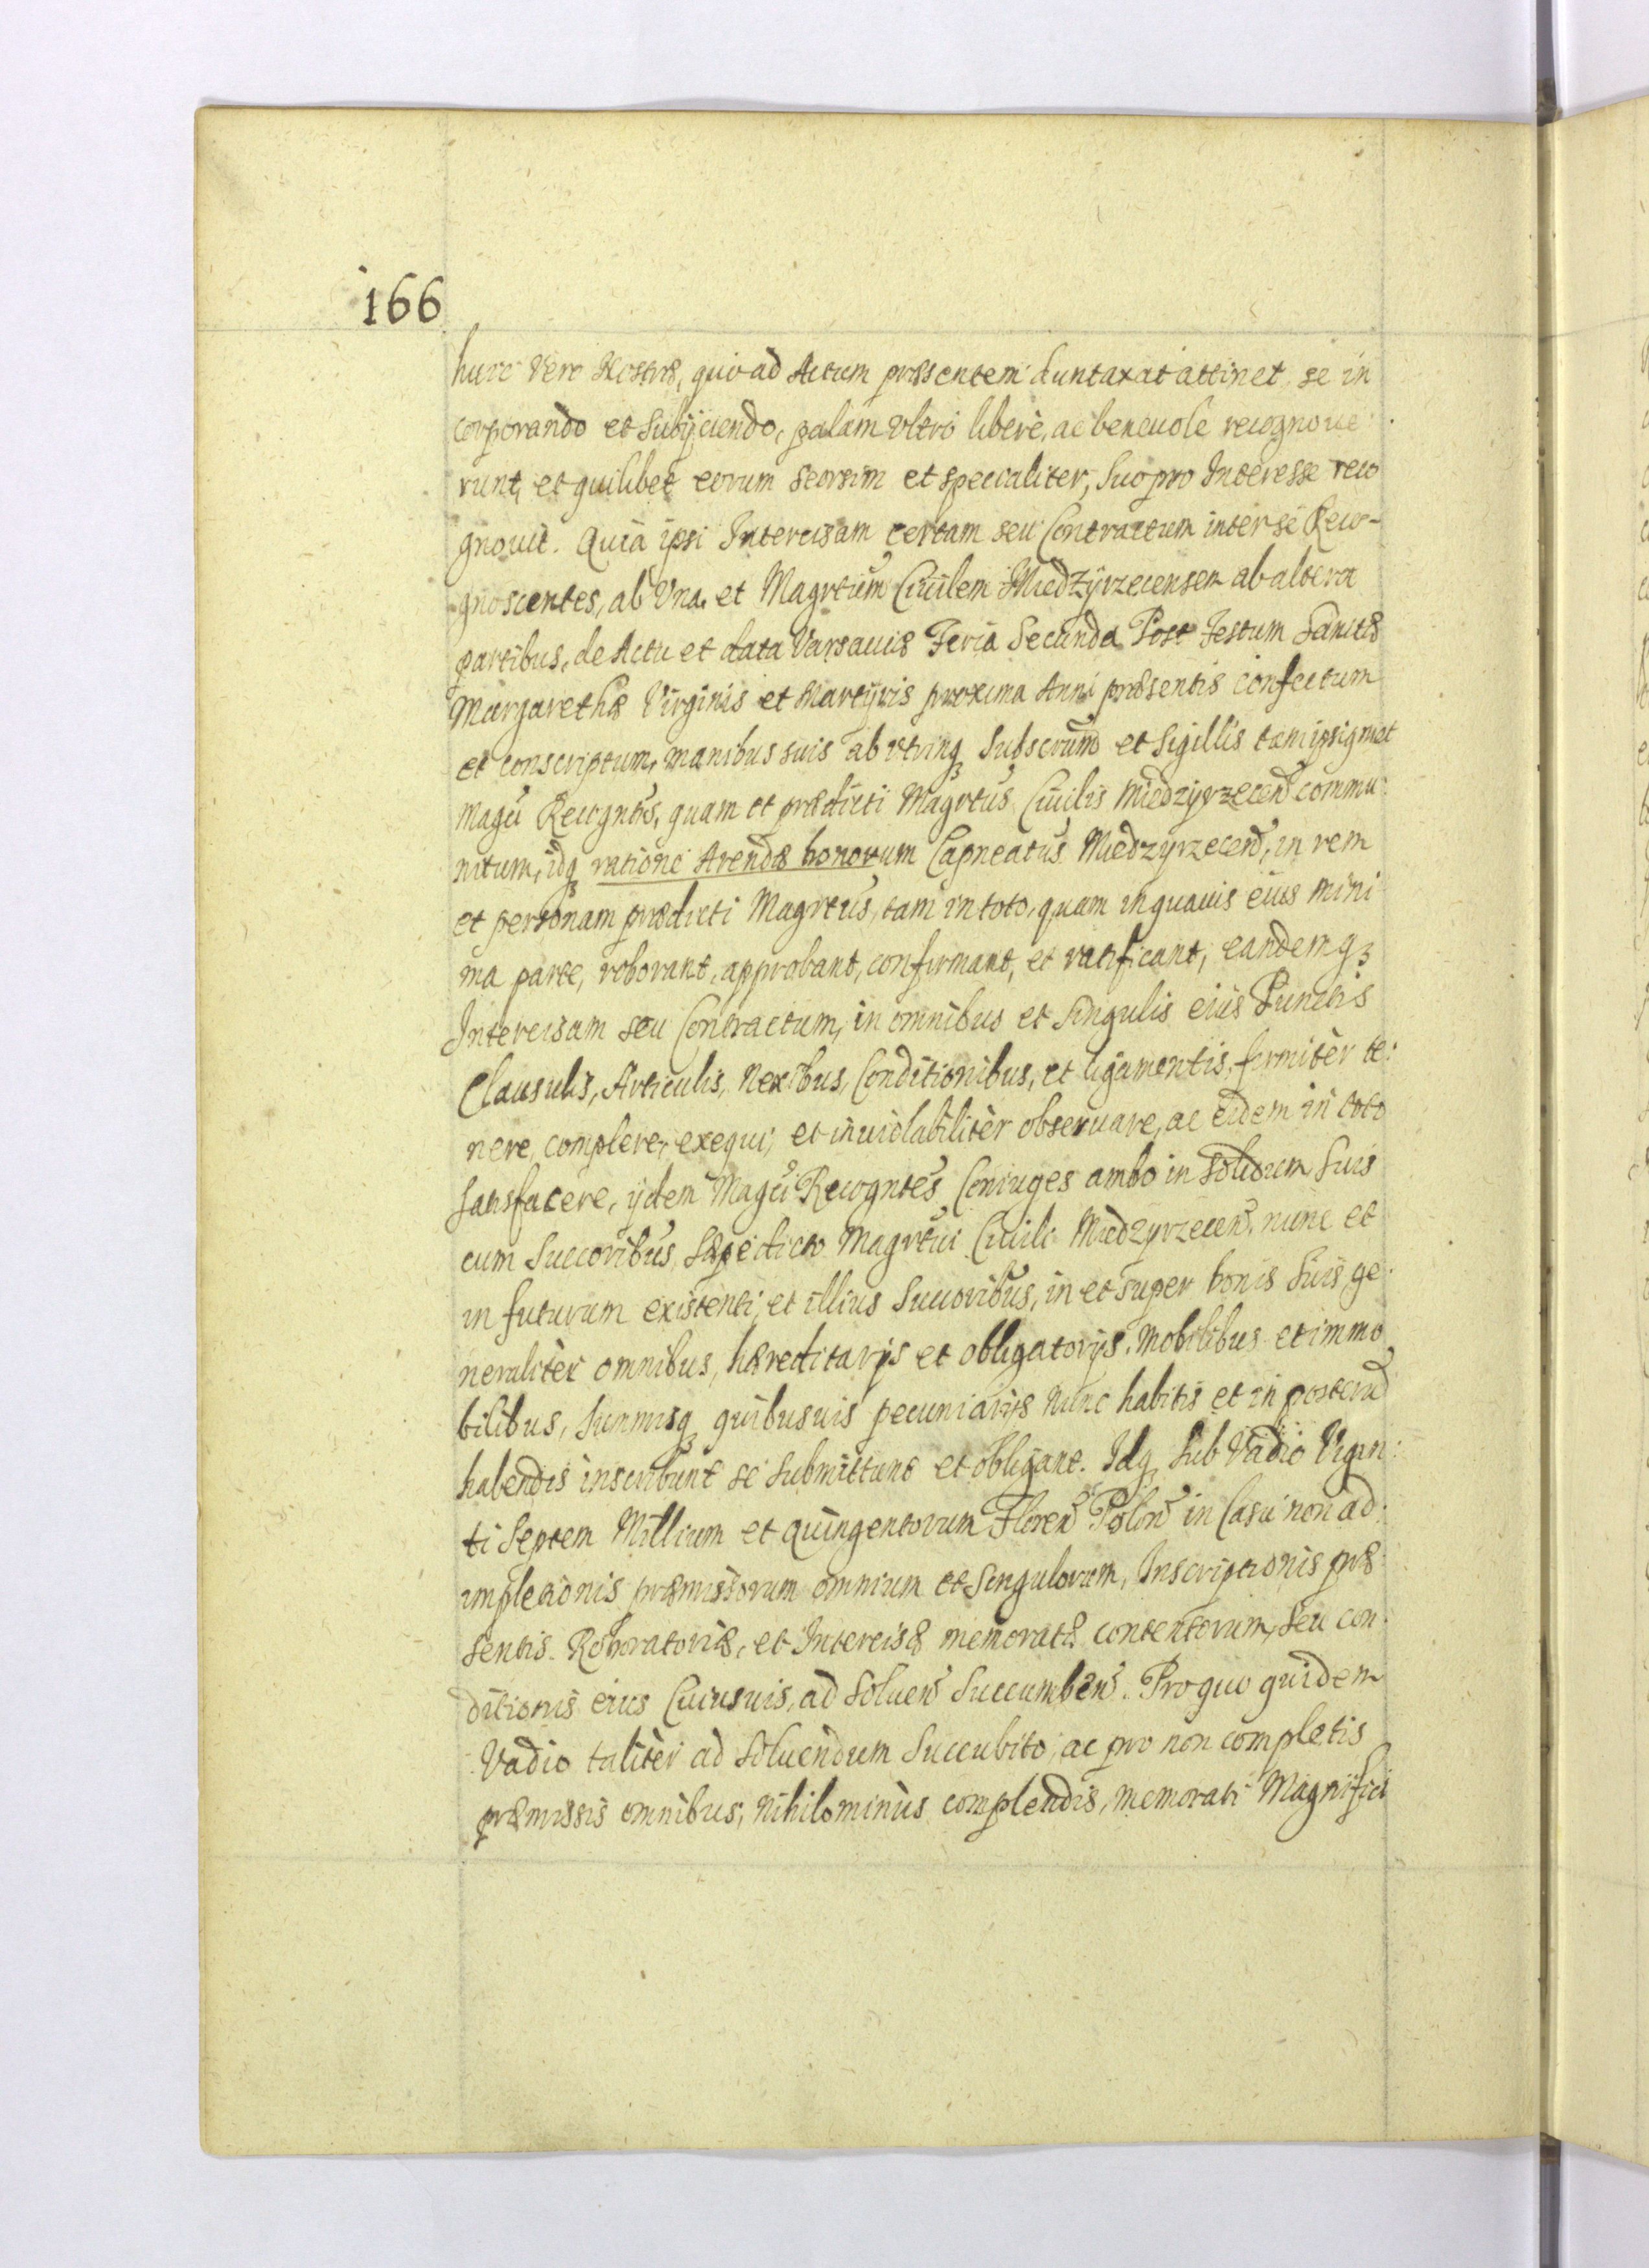 166
huic vero Nostræ, quo ad Actum præsentem duntaxat attinet se in
corporando et subijciendo, palam vltro libere, ac beneuole recognoue
runt, et quilibet eorum seorsim et specialiter, suo pro Interesse reco
gnouit. Quia ipsi Intercisam certam seu Contractum inter se Reco-
gnoscentes, ab Vna. et Magrtum Ciuilem Miedzyrzecensem ab altera
partibus, de Actu et data Varsauiæ Feria Secunda Post Festum Sanctæ
Margarethæ Virginis et Martyris proxima Anni præsentis confectum
et conscriptum, manibus suis ab vtrinq3 subscrum et Sigillis tam ipsigmet
Magci Recogntes, quam et prædicti Magrtus Ciuilis Miedzyrzecen commu:
nitum, idq3 ratione Arendæ bonorum Capneatus Miedzyrzecen, in rem
et personam prædicti Magrtus, tam in toto, quam in quauis eius mini
ma parte, roborant, approbant, confirmant, et ratificant, eandemq3
Intercisam seu Contractum, in omnibus et singulis eius Punctis
Clausulis, Articulis, Nexibus, Conditionibus, et ligamentis, firmiter te:
nere, complere, exequi, et inuiolabiliter obseruare, ac eidem in toto
satisfacere, ijdem Magci Recogntes Coniuges ambo in solidum suis
cum Succoribus, sæpedicto Magrtui Ciuili Miedzyrzecen, nunc et
in futurum existenti, et illius Succoribus, in et super bonis suis ge
neraliter omnibus, hæreditarijs et obligatorijs, Mobilibus et immo
bilibus, summisq3 quibusuis pecuniarijs nunc habitis et in posterum
habendis inscribunt se submittunt et obligant. Idq3 sub Vadio Vigin:
ti Septem Millium et quingentorum Floren Polon in Casu non ad:
impletionis præmissorum omnium et singulorum, Inscriptionis præ
sentis Roboratoriæ, et Intercisæ memoratæ contentorum, seu con
ditionis eius Cuiusuis, ad soluen succumben. Pro quo quidem
Vadio taliter ad soluendum succubito, ac pro non completis
præmissis omnibus, nihilominus complendis, memorati Magnifici